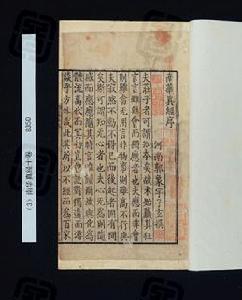 南華真經序
河南郭象子玄撰
夫莊子者可謂知本矣故未始藏其狂
言言雖無會而獨應者也夫應而非會
則雖當無用言非物事則雖高不行與
夫寂然不動不得已而後起者固有間
矣斯可謂知無心者也夫心無為則隨
感而應應隨其時言唯謹爾故與化為
體流萬代而冥物豈曾設對獨遘而游
談乎方外哉此其所以不經而為百家
(3) 南华真经十卷 8350